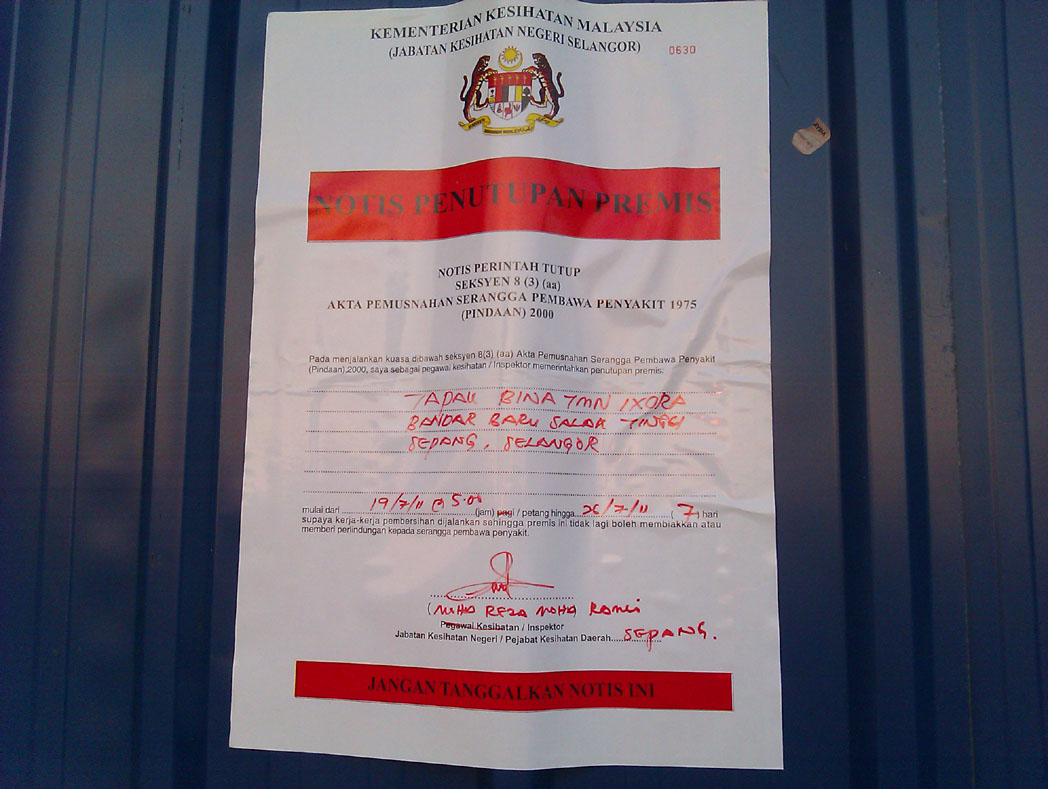 KEMENTERIAN KESIHATAN MALAYSIA
(JABATAN KESIHATAN NEGERI SELANGOR)
0630
NOTIS PENUTUPAN PREMIS
NOTIS PERINTAH TUTUP
SEKSYEN 8 (3) (aa)
AKTA PEMUSNAHAN SERANGGA PEMBAWA PENYAKIT 1975
(PINDAAN) 2000
Pada menjalankan kuasa dibawah seksyen 8(3) (aa) Akta Pemusnahan Serangga Pembawa Penyakit
(Pindaan),2000, saya sebagai pegawai kesihatan / Inspektor memerintahkan penutupan premis:
TAPAK BINA TMN IXORA
BANDAR BARU SALAK TINGGI
SEPANG, SELANGOR
mulai dari 19/7/11 @ 5.00 (jam) pagi / petang hingga 26/7/11 ( 7 ) hari
supaya kerja-kerja pembersihan dijalankan sehingga premis ini tidak lagi boleh membiakkan atau
memberi perlindungan kepada serangga pembawa penyakit.
(MOHD REZA MOHD
Pegawai Kesihatan / Inspektor
Jabatan Kesihatan Negeri / Pejabat Kesihatan Daerah SEPANG.
JANGAN TANGGALKAN NOTIS INI